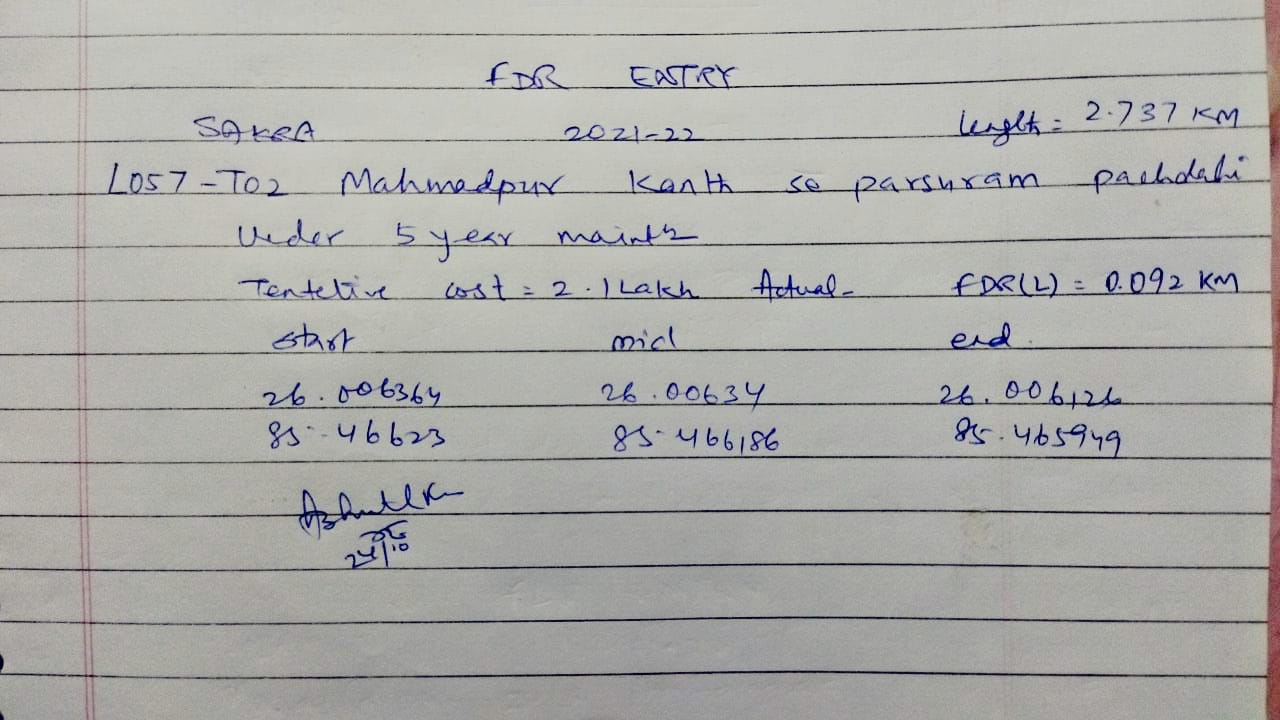 FDR ENTRY
SAKRA 2021-22 length = 2.737 KM
L057-T02 Mahmadpur Kanth se parsuram pachdahi
Under 5 year
Tentetive cost = 2.1 Lakh Actual- FDR(L) = 0.092 KM
start mid end
26.006364 26.00634 26.006126
85.46623 85.466186 85.465949
24/10